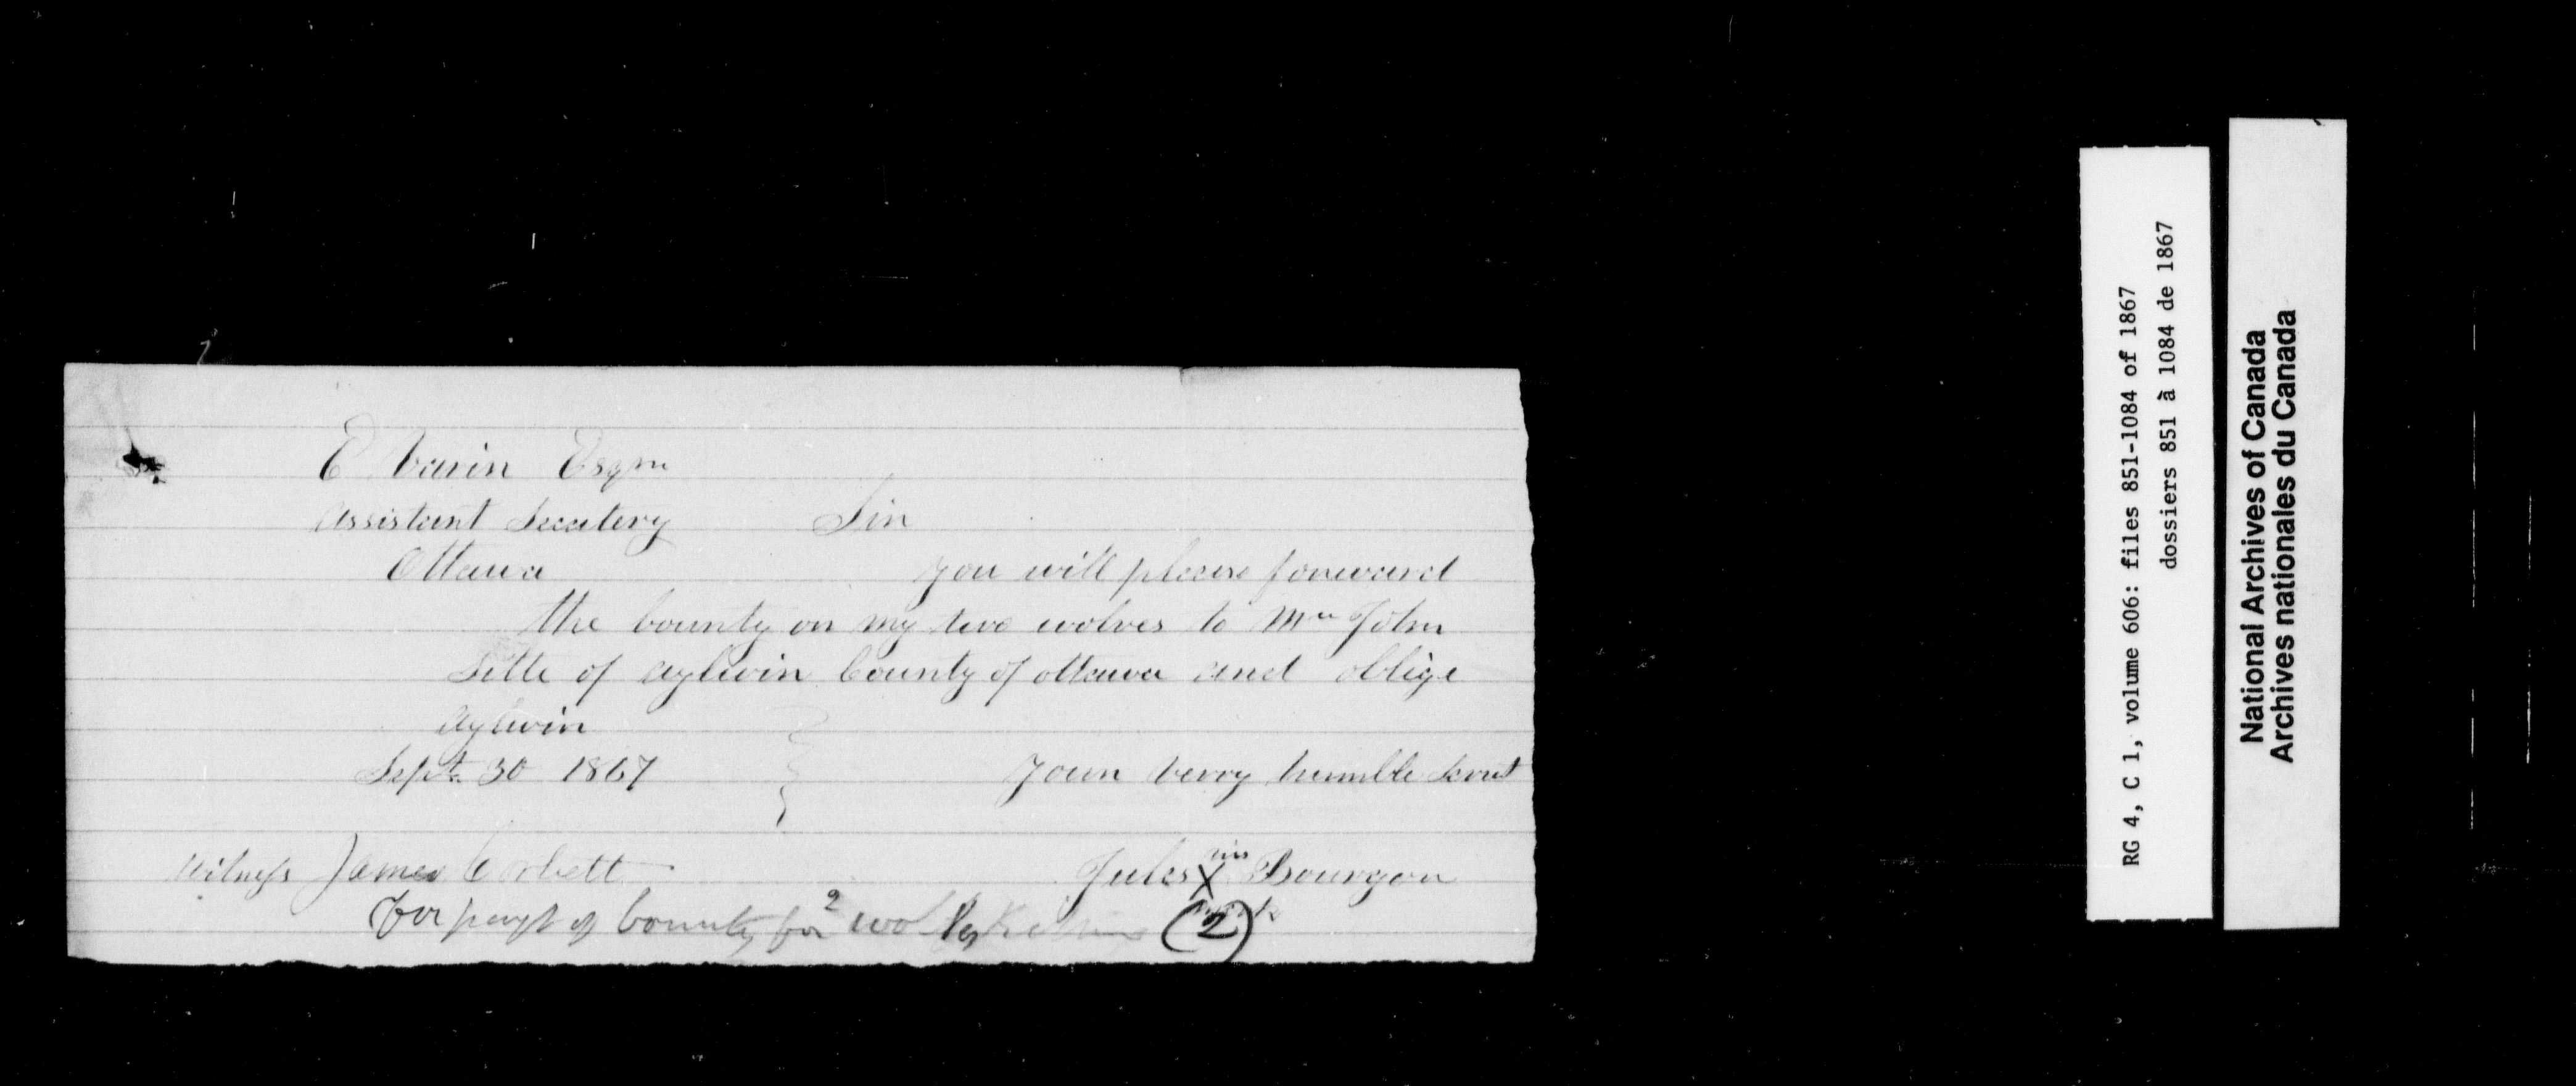 E Varin Esqr
Assistant Secutery Sir
Ottawa you will please forward
the bounty on my two wolves to Mr John
Litle of aylwin County of ottawa and oblige
Aylwin
Sept 30 1867 your verry humble servt
Witness James Corbett Jules his X mark Bourgon
for payt of bounty for 2 wolfs (2)
RG 4, C 1, volume 606: files 851-1084 of 1867
dossiers 851 à 1084 de 1867
National Archives of Canada
Archives nationales du Canada